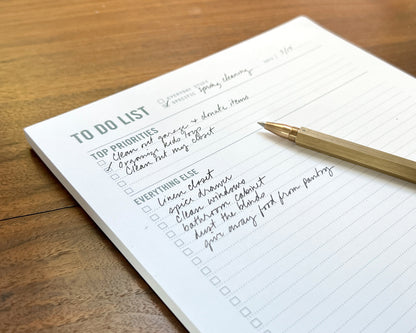 TO DO LIST
EVERYDAY STUFF
SPECIFIC spring cleaning
DATE 3/14
TOP PRIORITIES
clean out garage & donate items
organize kids toys
clean out my closet
EVERYTHING ELSE
linen closet
spice drawer
clean windows
bathroom cabinet
dust the blinds
give away food from pantry